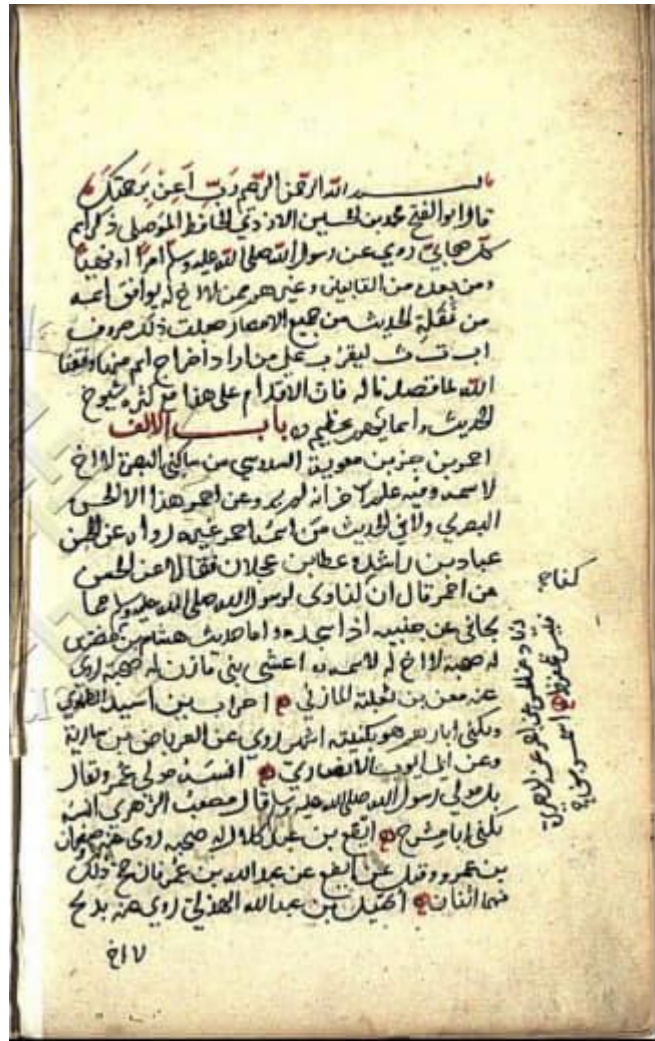 بسم الله الرحمن الرحيم رب أعن برحمتك
قال ابو الفتح محمد بن الحسين الازدي الحافظ الموصلي ذكر اسم
كل صحابي روي عن رسول الله صلى الله عليه وسلم امرا او نهيا
ومن بعده من التابعين وغيرهم ممن لا اخ له يوافق اسمه
من نقلة الحديث من جميع الامصار جعلت ذلك حروف
ا ب ت ث ليقرب على من اراد اخراج اسم منها وفقنا
الله لما قصدنا له فان الاقدام على هذا مع كثرة شيوخ
الحديث واسمايهم عظيم باب الالف
احمر بن جزء بن معوية السدوسي من ساكني البصرة لا اخ
لاسمه وفيه علة لم يرو عن احمر هذا الا الحسن
البصري ولا في الحديث من اسمه احمر غيره رواه عن الحسن
عباد بن راشد عطا بن عجلان فقالا عن الحسن
عن احمر قال ان كنا لناوى لرسول الله صلى الله عليه وسلم مما
يجافي عن جنبيه اذا سجد واما حديث هشام بن
له صحبة لا اخ له لاسمه اعشى بني مازن له صحبة روى
عنه معن بن ثعلبة المازني احزاب بن اسيد الظهري
ويكنى ابا رهم هو بكنيته اشهر روى عن العرباض بن سارية
وعن ابي ايوب الانصاري انسة مولى عمر ويقال
بل مولى رسول الله صلى الله عليه وسلم قال مصعب الزهري انسة
يكنى ابا مسرح ايفع بن عبد كلال له صحبة روى عنه صفوان
بن عمرو وقيل عن ايفع عن عبد الله بن عمر فان صح ذلك
فهما اثنان بن عبد الله الهذلي روى عنه بديح
لا اخ